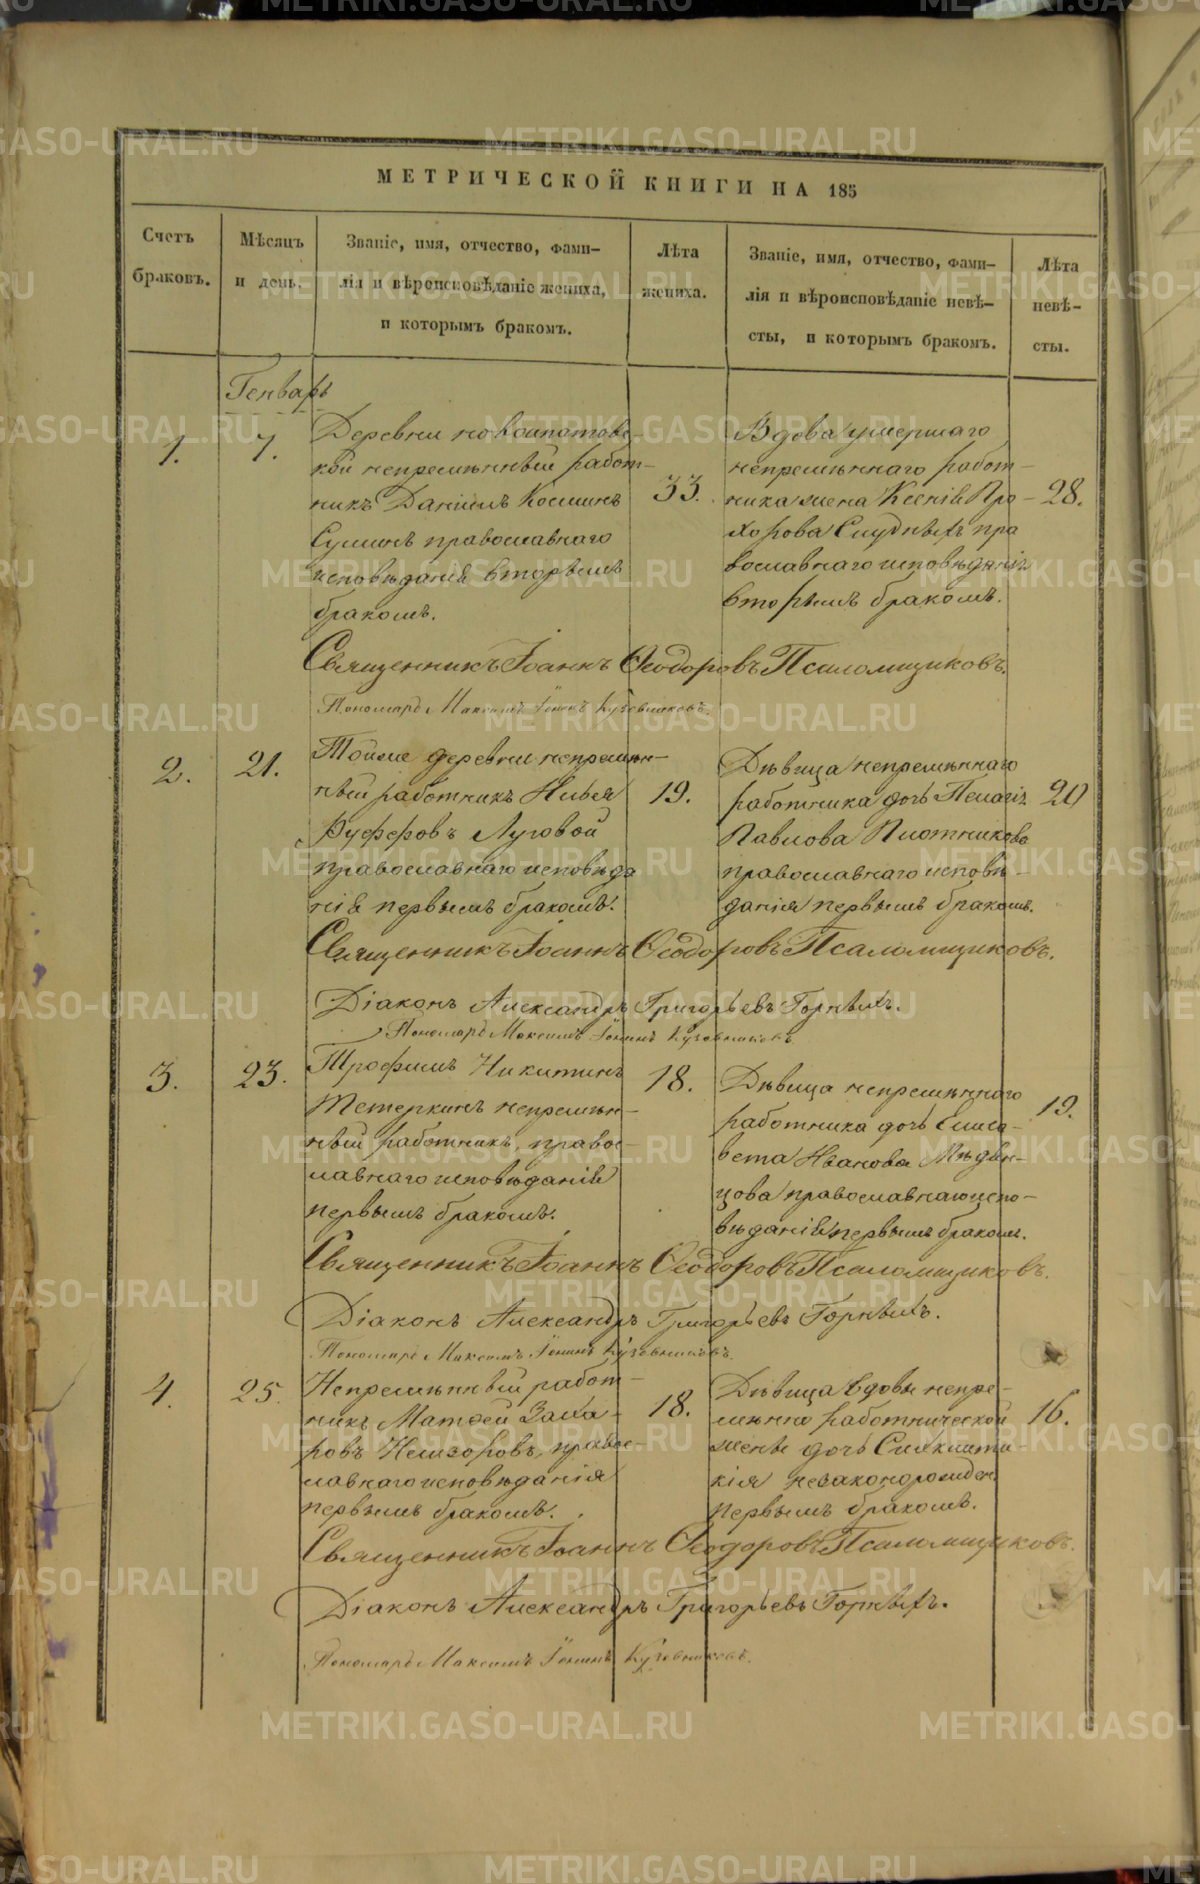 МЕТРИЧЕСКОЙ КНИГИ НА 185
Счетъ браковъ.
Мѣсяцъ и день.
Званіе, имя, отчество, фами-
лія и вѣроисповѣданіе жениха,
и которымъ бракомъ.
Лѣта жениха.
Званіе, имя, отчество, фами-
лія и вѣроисповѣданіе невѣ-
сты, и которымъ бракомъ.
Лѣта невѣ-
сты.
Генварь
1.
7.
Деревни новоипатовс-
кой непремѣнный работ-
никъ Даніилъ Косминъ
Сулинъ православнаго
исповѣданія вторымъ
бракомъ.
33.
Вдова умершаго
непремѣннаго работ-
ника жена Ксенія Про-
хорова православнаго исповѣданія
вторымъ бракомъ.
28.
Священникъ Іоаннъ Ѳеодоровъ Псаломщиковъ.
Пономарь Максимъ Іонинъ Кузовниковъ.
2.
21.
Тойже деревни непремѣн-
ный работникъ Илья
Руфферовъ Луговой
православнаго исповѣда
нія первымъ бракомъ.
19.
Дѣвица непремѣннаго
работника дочь Пелагія
Павлова Плотникова
православнаго исповѣ-
данія первымъ бракомъ.
20
Священникъ Іоаннъ Ѳеодоровъ Псаломщиковъ.
Діаконъ Александръ Григорьевъ Горныхъ.
Пономарь Максимъ Іонинъ Кузовниковъ
3.
23.
Трофимъ Никитинъ
Тетеркинъ непремѣн-
ный работникъ, право-
славнаго исповѣданія
первымъ бракомъ.
18.
Дѣвица непремѣннаго
работника дочь Елиса-
вета Иванова Мѣдин-
цова православнаго испо-
вѣданія первымъ бракомъ.
19.
Священникъ Іоаннъ Ѳеодоровъ Псаломщиковъ.
Діаконъ Александръ Григорьевъ Горныхъ.
Пономарь Максимъ Іонинъ Кузовниковъ.
4.
25.
Непремѣнный работ-
никъ Матѳей Заха-
ровъ православнаго исповѣданія
первымъ бракомъ.
18.
Дѣвица вдовы непре-
мѣнно работнической
женки дочь Синклити
кія незаконорожден.
первымъ бракомъ.
16.
Священникъ Іоаннъ Ѳеодоровъ Псаломщиковъ.
Діаконъ Александръ Григорьевъ Горныхъ.
Пономарь Максимъ Іонинъ Кузовниковъ.
METRIKI.GASO-URAL.RU